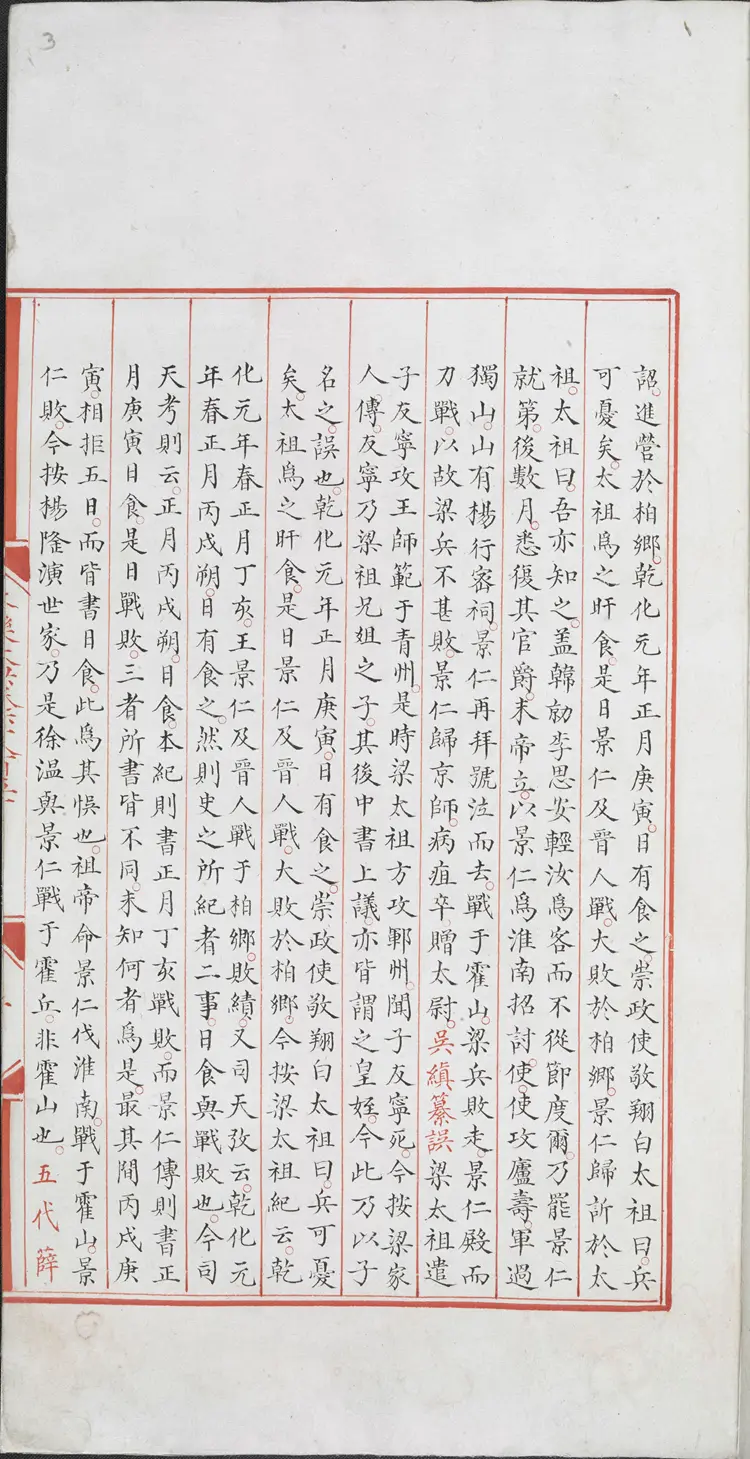 3
詔。進營於柏鄉。乾化元年正月庚寅。日有食之。崇政使敬翔白太祖曰。兵
可憂矣。太祖爲之旰食。是日景仁及晉人戰。大敗於柏鄉。景仁歸訴於太
祖。太祖曰。吾亦知之。盖韓勍李思安輕汝爲客而不從節度爾。乃罷景仁
就第。後數月。悉復其官爵。末帝立。以景仁爲淮南招討使。使攻廬壽。軍過
獨山。山有楊行宻祠。景仁再拜號泣而去。戰于霍山。梁兵敗走。景仁殿而
力戰。以故梁兵不甚敗。景仁歸京師。病疽卒。贈太尉。吳縝纂誤梁太祖遣
子友寧攻王師範于青州。是時梁太祖方攻鄆州。聞子友寧死。今按梁家
人傳。友寧乃梁祖兄姐之子。其後中書上議。亦皆謂之皇姪。今此乃以子
名之。誤也。乾化元年正月庚寅。日有食之。崇政使敬翔白太祖曰。兵可憂
矣。太祖爲之旰食。是日景仁及晉人戰。大敗於柏鄉。今按梁太祖紀云。乾
化元年春正月丁亥。王景仁及晉人戰于柏鄉。敗績。又司天攷云。乾化元
年春正月丙戌朔。日有食之。然則史之所紀者二事。日食與戰敗也。今司
天考則云。正月丙戌朔。日食。本紀則書正月丁亥戰敗。而景仁傳則書正
月庚寅日食。是日戰敗。三者所書皆不同。未知何者爲是。最其間丙戌庚
寅。相拒五日。而皆書日食。此爲其悞也。祖帝命景仁伐淮南。戰于霍山。景
仁敗。今按楊隆演世家。乃是徐温與景仁戰于霍丘。非霍山也。五代薛